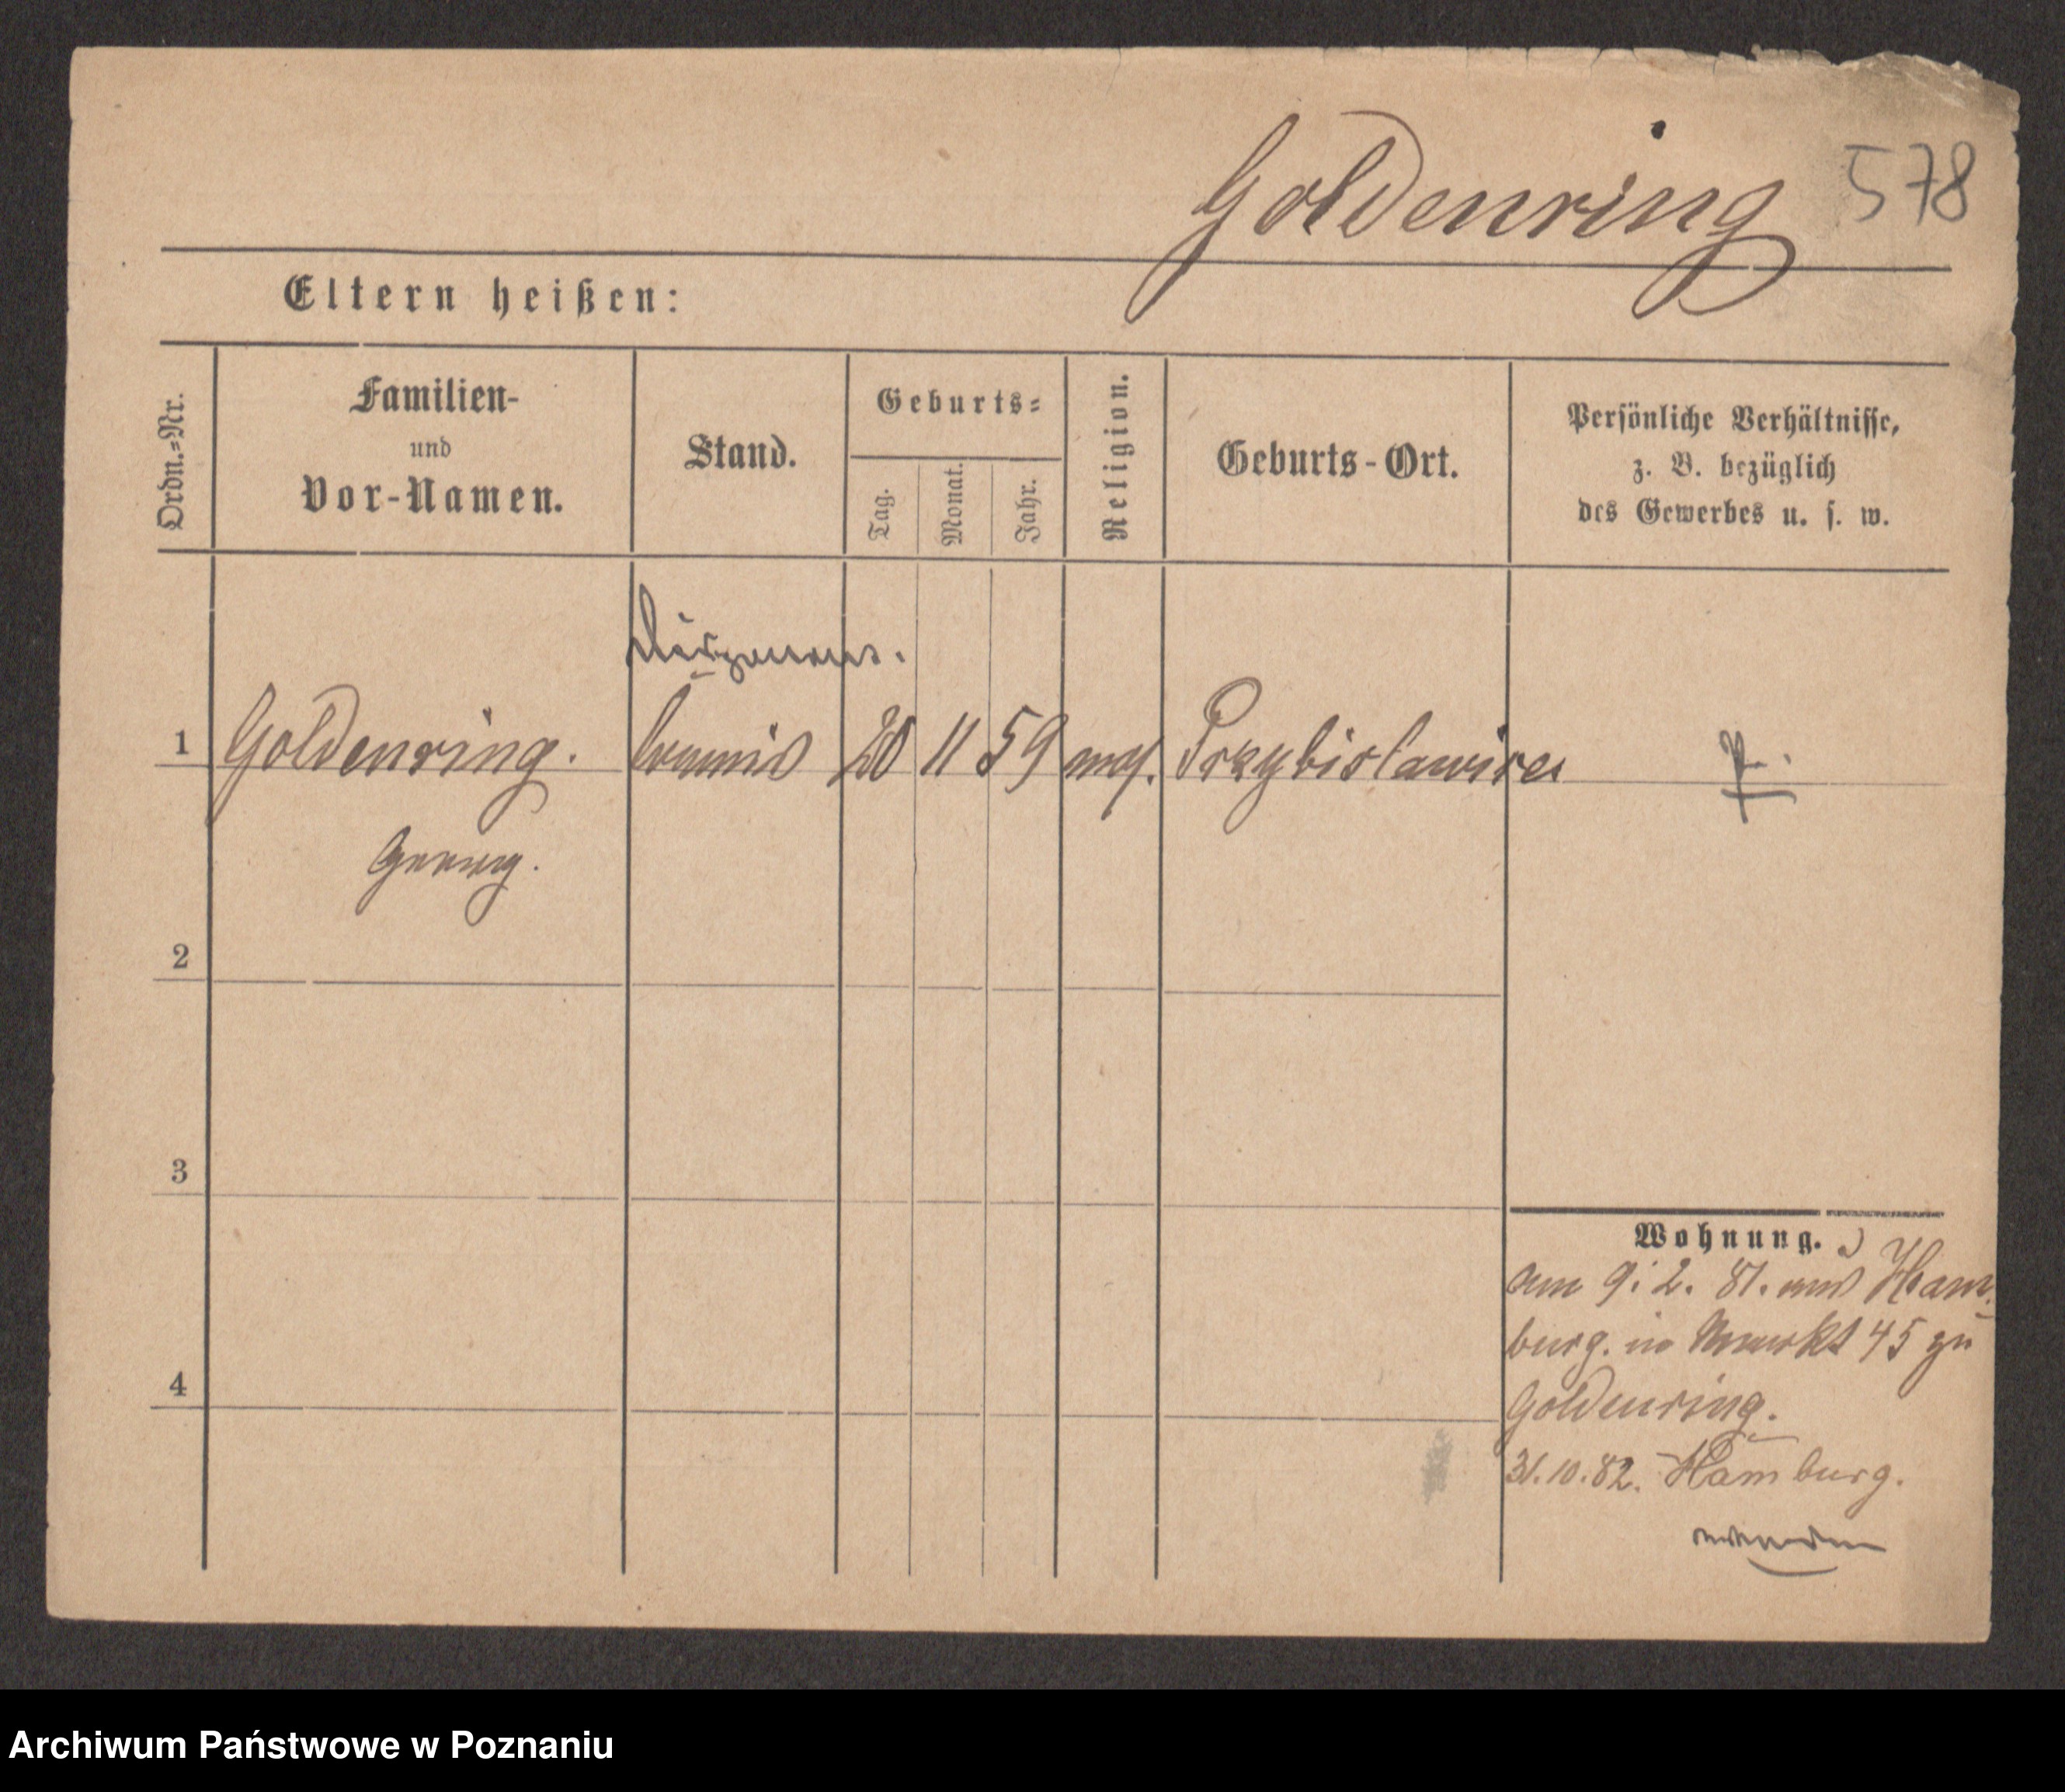 Goldenring 578
Eltern heißen:
Ordn.=Nr.
Familien-
und
Vor-Namen.
Stand.
Geburts=
Tag.
Monat.
Jahr.
Religion.
Geburts-Ort.
Persönliche Verhältnisse,
z. B. bezüglich
des Gewerbes u. s. w.
1 Goldenring. Commis 20 11 59 mos. Przybislawice
Georg.
2
3
4
Wohnung.
am 9. 2. 81. aus Ham-
burg. in Markt 45 zu
Goldenring.
31. 10. 82. Hamburg.
wenden
Archiwum Państwowe w Poznaniu